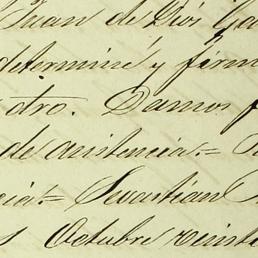 Juan de Dios Ga
determiné y firm
otro. Damos f
de asistencia.= 
cia= Sevastian
s Octubre veinti